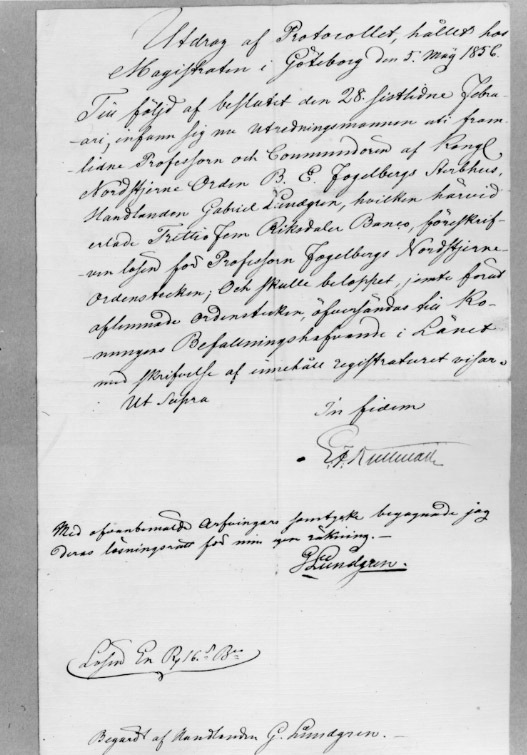 Utdrag af Protocollet, hållet hos
Magistraten i Göteborg den 5. Maij 1856.
Till följd af beslutet den 28. sistlidne Febru-
ari, infann sig nu utredningsmannen uti fram-
lidne Professorn och Commendören af Kongl
Nordstjerne Orden B. E. Fogelbergs Sterbhus,
Handlanden Gabriel Lundgren, hvilken härvid
erlade Trettiofem Riksdaler Banco, föreskrif-
ven lösen för Professorn Fogelbergs Nordstjerne-
ordenstecken; Och skulle beloppet, jemte förut
aflemnade ordenstecken, öfversändas till Ko-
nungens Befallningshafvande i Länet
med skrifvelse af innehåll registraturet visar.
Ut Supra
In fidem
Med ofvanbemälde Arfvingars samtycke begagnade jag
deras lösningsrätt för min egen räkning.-
G Lundgren.
Lösen En Rd 16 s Bco
Begärdt af Handlanden G. Lundgren.-